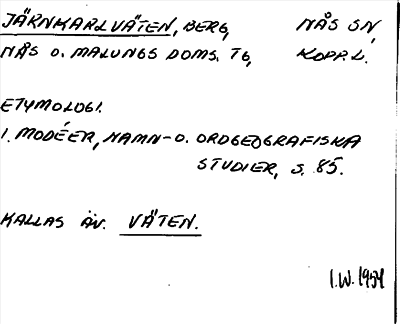 JÄRNKARLVÄTEN, BERG, NÅS SN,
NÅS O. MALUNGS DOMS. TG, KOPP.L.
ETYMOLOGI.
I. MODÉER, NAMN- O. ORDGEOGRAFISKA
STUDIER, S. 85.
KALLAS ÄV. VÄTEN.
I.W. 1954